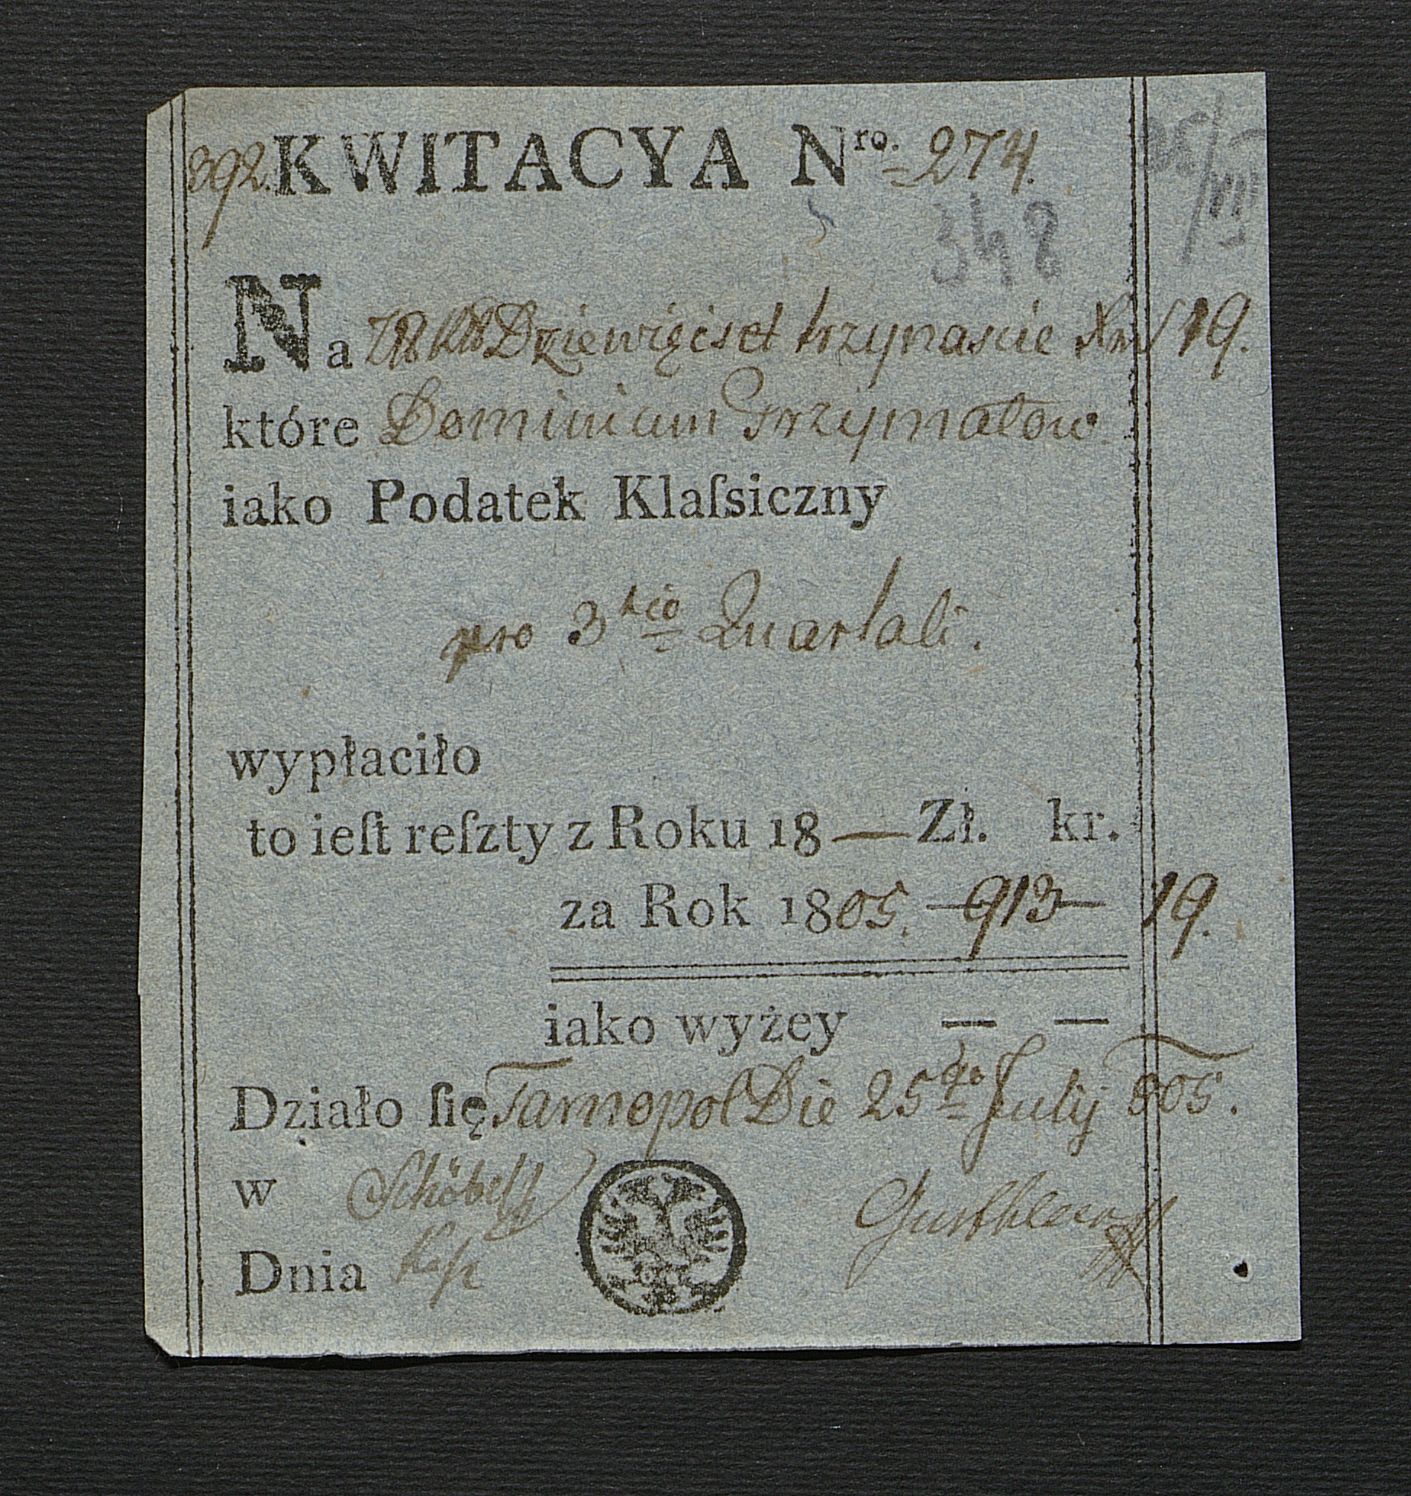 392. KWITACYA Nro. 274.
348
Na Dziewięćset trzynaście Xr 19.
które Dominium Grzymałow
iako Podatek Klaſsiczny
pro 3tio Quartali.
wypłaciło
to ieſt reſzty z Roku 18 — Zł. kr.
za Rok 1805. — 913 — 19.
iako wyżey — —
Działo ſię Tarnopol Die 25ta July 805.
w Schöbel
Dnia